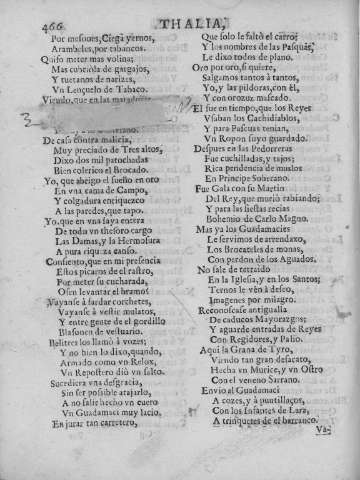 466
THALIA,
Por mesones, Cirga yernos,
Arambeles, por tabancos.
Quiso meter mas volina;
Mas cubriola de gargajos,
Y tuetanos de narizes,
Vn Lençuelo de Tabaco.
Viendo, que en las
3
De casa contra malicia,
Muy preciado de Tres altos,
Dixo dos mil patochadas
Bien colerico el Brocado.
Yo, que abrigo el sueño en oro
En vna cama de Campo,
Y colgadura enriquezco
A las paredes, que tapo.
Yo, que en vna saya entera
De todo vn thesoro cargo
Las Damas, y la Hermosura
A pura riqueza canso.
Consiento, que en mi presencia
Estos picaros de el rastro,
Por meter su cucharada,
Osen levantar el bramo?
Vayanse à fardar corchetes,
Vayanse à vestir mulatos,
Y entre gente de el gordillo
Blasonen de vestuario.
Belitres los llamò à vozes;
Y no bien lo dixo, quando,
Armado como vn Relox,
Vn Repostero diò vn salto.
Sucediera vna desgracia,
Sin ser posible atajarlo,
A no salir hecho vn cuero
Vn Guadamaci muy lacio,
En jurar tan carretero,
Que solo le faltò el carro;
Y los nombres de las Pasquas,
Le dixo todos de plano.
Oyo por oro, si quiere,
Salgamos tantos à tantos,
Yo, y las pildoras, con èl,
Y con orozuz mascado.
El fue en tiempo, que los Reyes
Vsaban los Cachidiablos,
Y para Pascuas tenian,
Vn Ropon suyo guardado.
Despues en las Pedorreras
Fue cuchilladas, y tajos;
Rica pendencia de muslos
En Principe Soberano.
Fue Gala con su Martin
Del Rey, que muriò rabiando;
Y para las fiestas recias
Bohemio de Carlo Magno.
Mas ya los Guadamacies
Le servimos de arrendaxo,
Los Brocateles de monas,
Con perdon de los Aguados.
No sale de tataraido
En la Iglesia, y en Santos;
Ternos le vèn à deseo,
Imagenes por milagro.
Reconozcase antigualla
De caducos Mayorazgos;
Y aguarde entradas de Reyes
Con Regidores, y Palio.
Aqui la Grana de Tyro,
Viendo tan gran desacato,
Hecha vn Murice, y vn Ostro
Con el veneno Sarrano.
Envio al Guadamaci
A cozes, y à puntillaços,
Con los Infantes de Lara,
A trinquetes de el barranco.
Va-